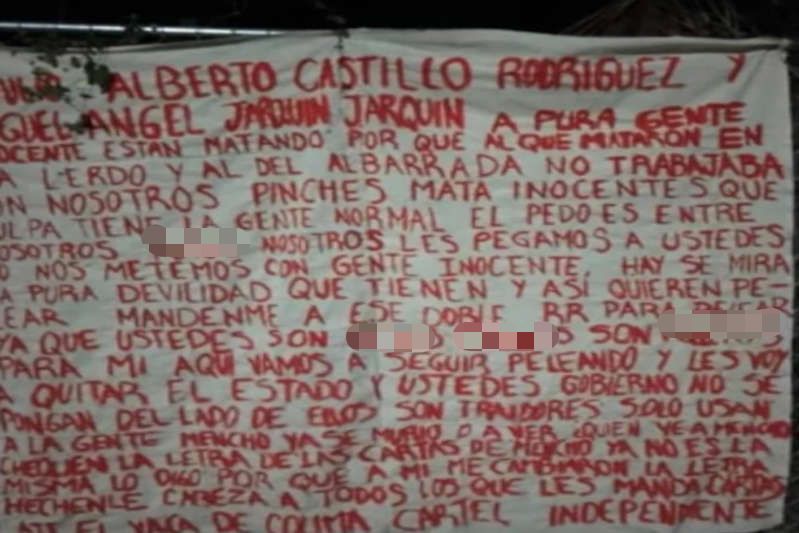 ALBERTO CASTILLO RODRIGUEZ Y
ANGEL JARQUIN JARQUIN A PURA GENTE
OCENTE ESTAN MATANDO POR QUE AL QUE MATARON EN
LERDO Y AL DEL ALBARRADA NO TRABAJABA
ON NOSOTROS PINCHES MATA INOCENTES QUE
ULPA TIENE LA GENTE NORMAL EL PEDO ES ENTRE
OSOTROS NOSOTROS LES PEGAMOS A USTEDES
O NOS METEMOS CON GENTE INOCENTE, HAY SE MIRA
A PURA DEVILIDAD QUE TIENEN Y ASI QUIEREN PE-
LEAR MANDENME A ESE DOBLE RR PARA
YA QUE USTEDES SON SON
PARA MI AQUI VAMOS A SEGUIR PELEANDO Y LES VOY
A QUITAR EL ESTADO Y USTEDES GOBIERNO NO SE
PONGAN DEL LADO DE ELLOS SON TRAIDORES SOLO USAN
A LA GENTE MENCHO YA SE MURIO O A VER QUIEN VE A MENCHO
CHEQUEN LA LETRA DE LAS CARTAS DE MENCHO YA NO ES LA
MISMA LO DIGO POR QUE A MI ME CAMBIARON LA LETRA
HECHENLE CABEZA A TODOS LOS QUE LES MANDA CARTAS
EL DE COLIMA CARTEL INDEPENDIENTE